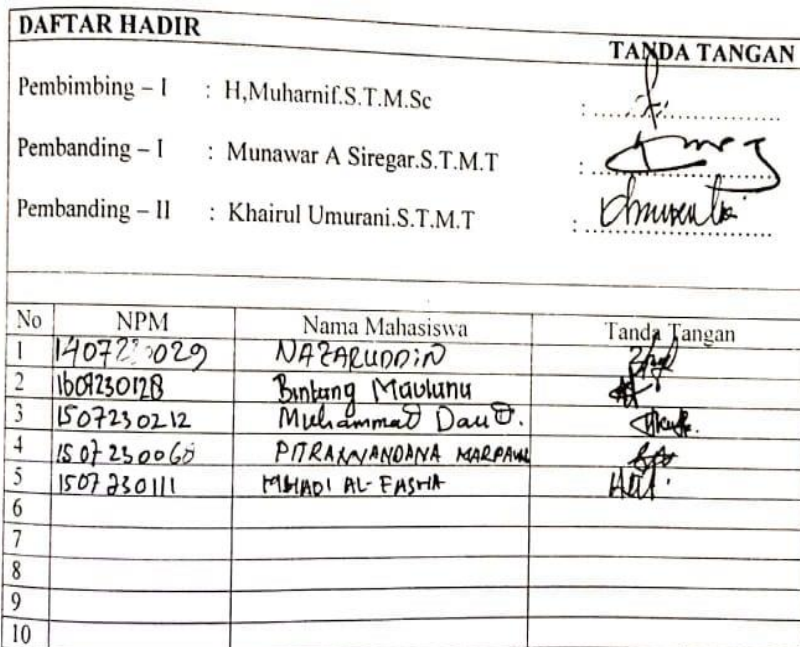 DAFTAR HADIR
TANDA TANGAN
Pembimbing – I : H,Muharnif.S.T.M.Sc : ..............
Pembanding – I : Munawar A Siregar.S.T.M.T : ..............
Pembanding – II : Khairul Umurani.S.T.M.T : ..............
No NPM Nama Mahasiswa Tanda Tangan
1 NAZARUDDIN
2 1607230128 Bintang Maulana
3 1507230212 Muhammad Daud.
4 1507230060
5 1507230111 AL-FASHA
6
7
8
9
10